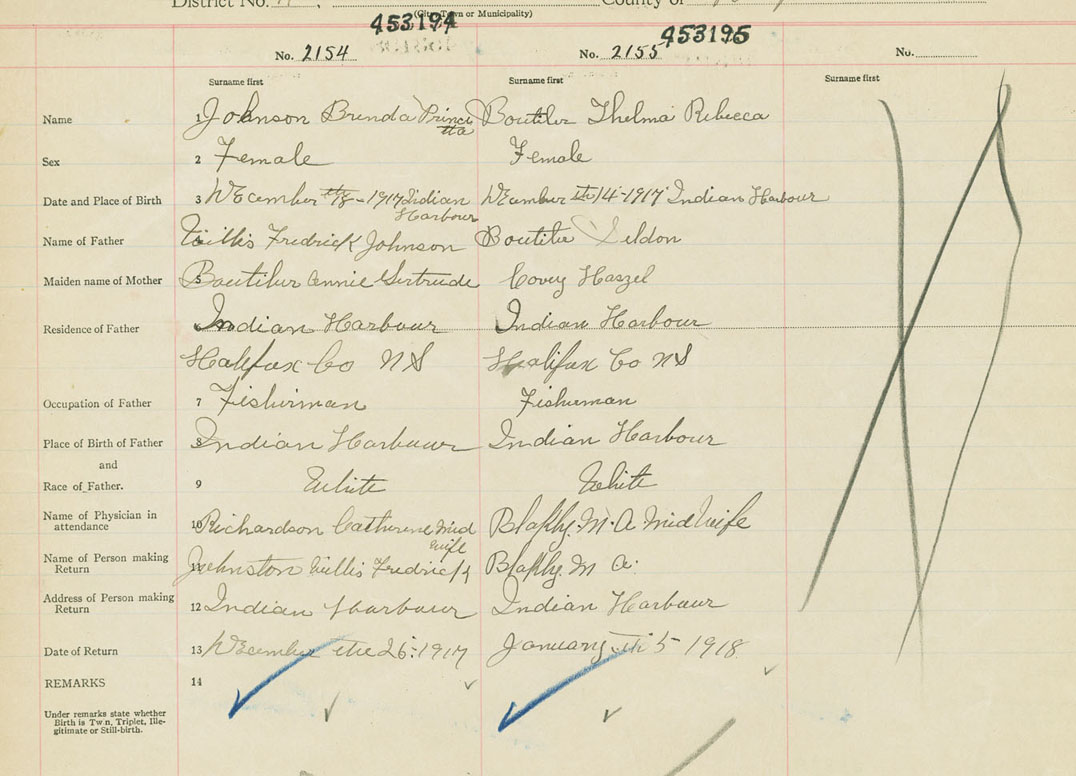 District No. County of
(City Town or Municipality)
453194 453195
No. 2154 No. 2155 No.
Surname first Surname first Surname first
Name 1 Johnson Brenda Princi Boutiler Thelma Rebecca
tta
Sex 2 Female Female
Date and Place of Birth 3 December the 8-1917 Indian December th 14-1917 Indian Harbour
Harbour
Name of Father 4 Willis Fredrick Johnson Boutiler Seldon
Maiden name of Mother 5 Boutilur Annie Gertrude Covey Haszel
Residence of Father 6 Indian Harbour Indian Harbour
Halifax Co NS Halifax Co NS
Occupation of Father 7 Fisherman Fisherman
Place of Birth of Father 8 Indian Harbour Indian Harbour
and
Race of Father. 9 White White
Name of Physician in
attendance 10 Richardson Catherene Mid M. A Midwife
wife
Name of Person making
Return 11 Johnston Willis Fredrick M A.
Address of Person making
Return 12 Indian Harbour Indian Harbour
Date of Return 13 December the 26-1917 January th 5-1918
REMARKS 14
Under remarks state whether
Birth is Twin, Triplet, Ille-
gitimate or Still-birth.